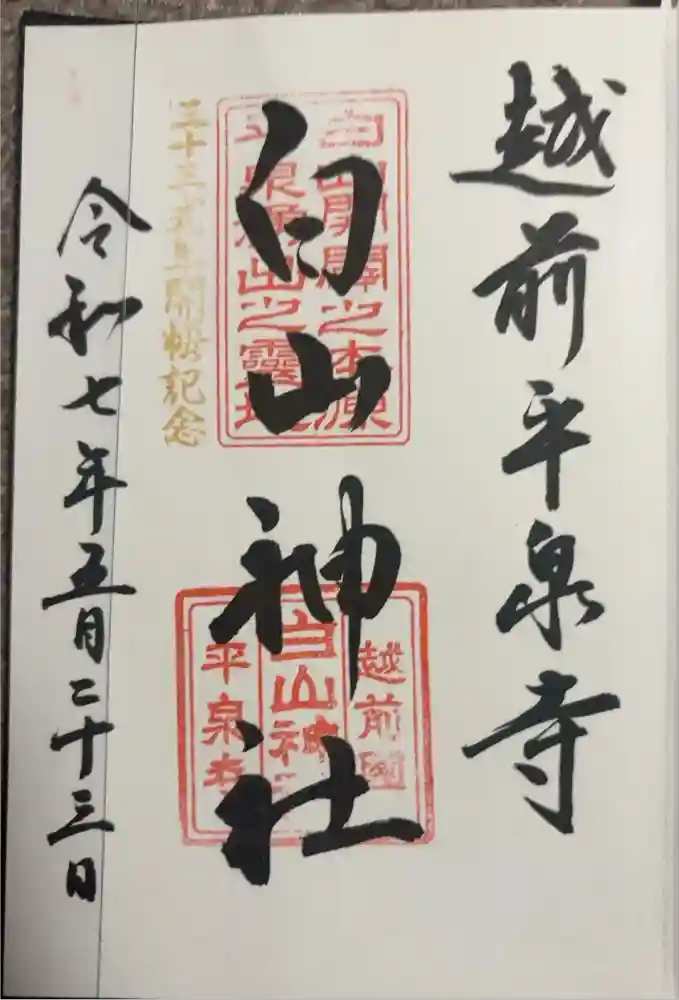 越前平泉寺
白山神社
白山開闢之本源
平泉湧出之靈地
越前國
白山神社
平泉寺
三十三式年開帳記念
令和七年五月二十三日